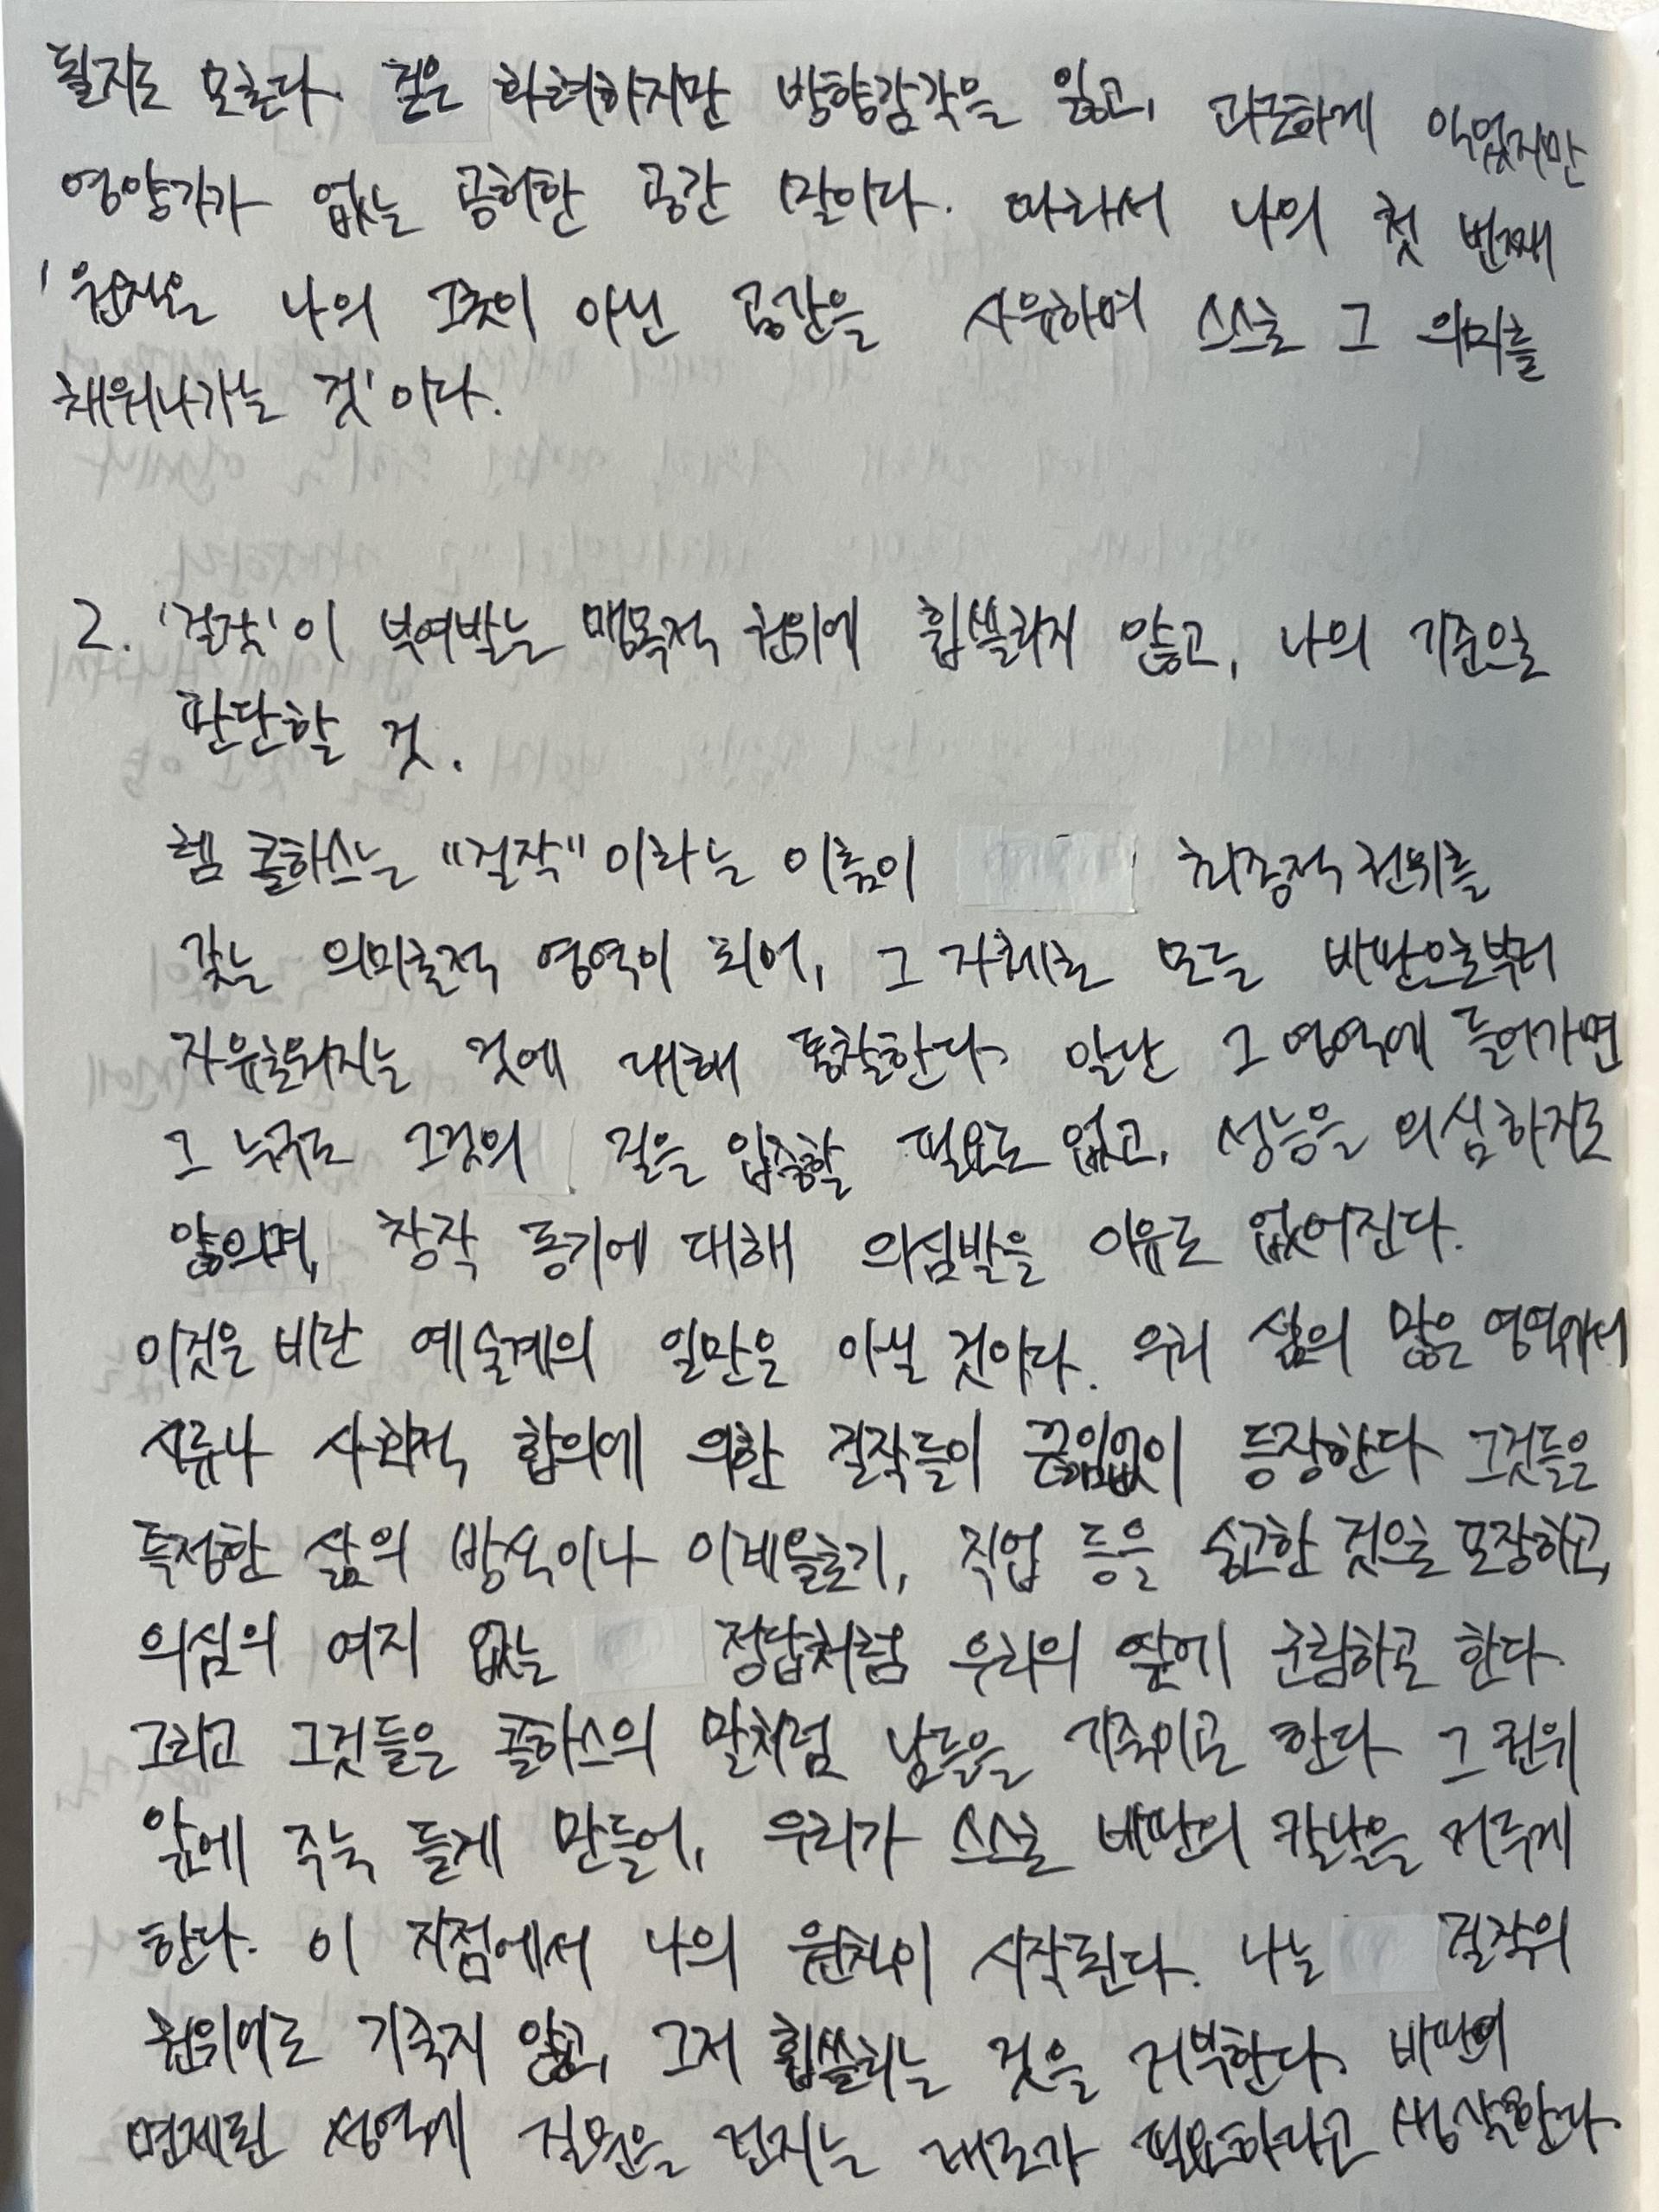 될지도 모른다. 겉은 화려하지만 방향감각을 잃고, 과근하게 먹었지만
영양가가 없는 공허한 공간 말이다. 따라서 나의 첫 번째
'원칙은 나의 그것이 아닌 공간을 사유하며 스스로 그 의미를
채워나가는 것'이다.
2. '걸작'이 부여받는 맹목적 권위에 휩쓸리지 않고, 나의 기준으로
판단할 것.
렘 콜하스는 "걸작"이라는 이름이 최종적 권위를
갖는 의미론적 영역이 되어, 그 자체로 모든 비판으로부터
자유로워지는 것에 대해 통찰한다. 일단 그 영역에 들어가면
그 누구도 그것의 질을 입증할 필요도 없고, 성능을 의심하지도
않으며, 창작 동기에 대해 의심받을 이유도 없어진다.
이것은 비단 예술계의 일만은 아닐 것이다. 우리 삶의 많은 영역에서
시류나 사회적 합의에 의한 걸작들이 끊임없이 등장한다. 그것들은
특정한 삶의 방식이나 이데올로기, 직업 등을 숭고한 것으로 포장하고,
의심의 여지 없는 정답처럼 우리의 앞에 군림하곤 한다.
그리고 그것들은 콜하스의 말처럼 남들을 기죽이곤 한다. 그 권위
앞에 주눅 들게 만들어, 우리가 스스로 비판의 칼날을 거두게
한다. 이 지점에서 나의 원칙이 시작된다. 나는 걸작의
권위에도 기죽지 않고, 그저 휩쓸리는 것을 거부한다. 비판이
면제된 성역에 질문을 던지는 태도가 필요하다고 생각한다.